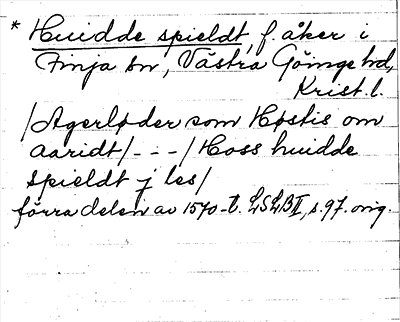 * Huidde spieldt, f. åker i
Finja sn, Västra Göinge hd,
Krist. l.
/Agerløder som Høstis om
aaridt/ - - - /Hoss huidde
spieldt j les/
förra delen av 1570-t. LSLB II, s. 97. orig.